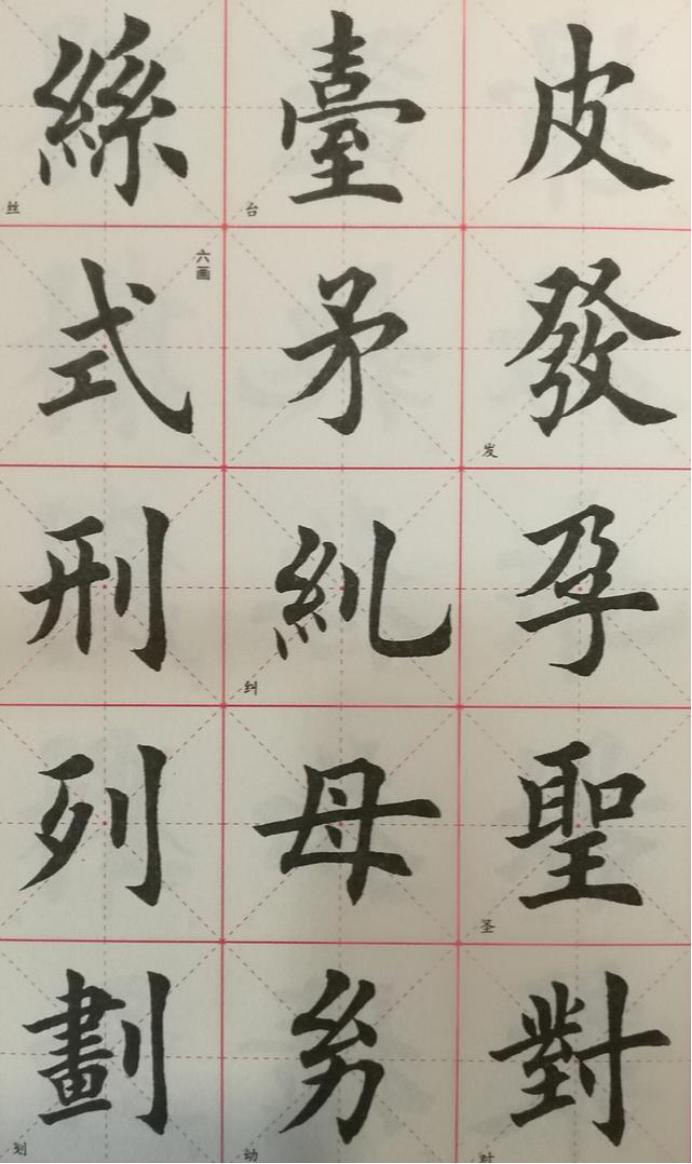 皮
發
发
孕
聖
圣
對
对
臺
台
矛
糺
纠
母
幼
幼
絲
丝
六画
式
刑
列
劃
划